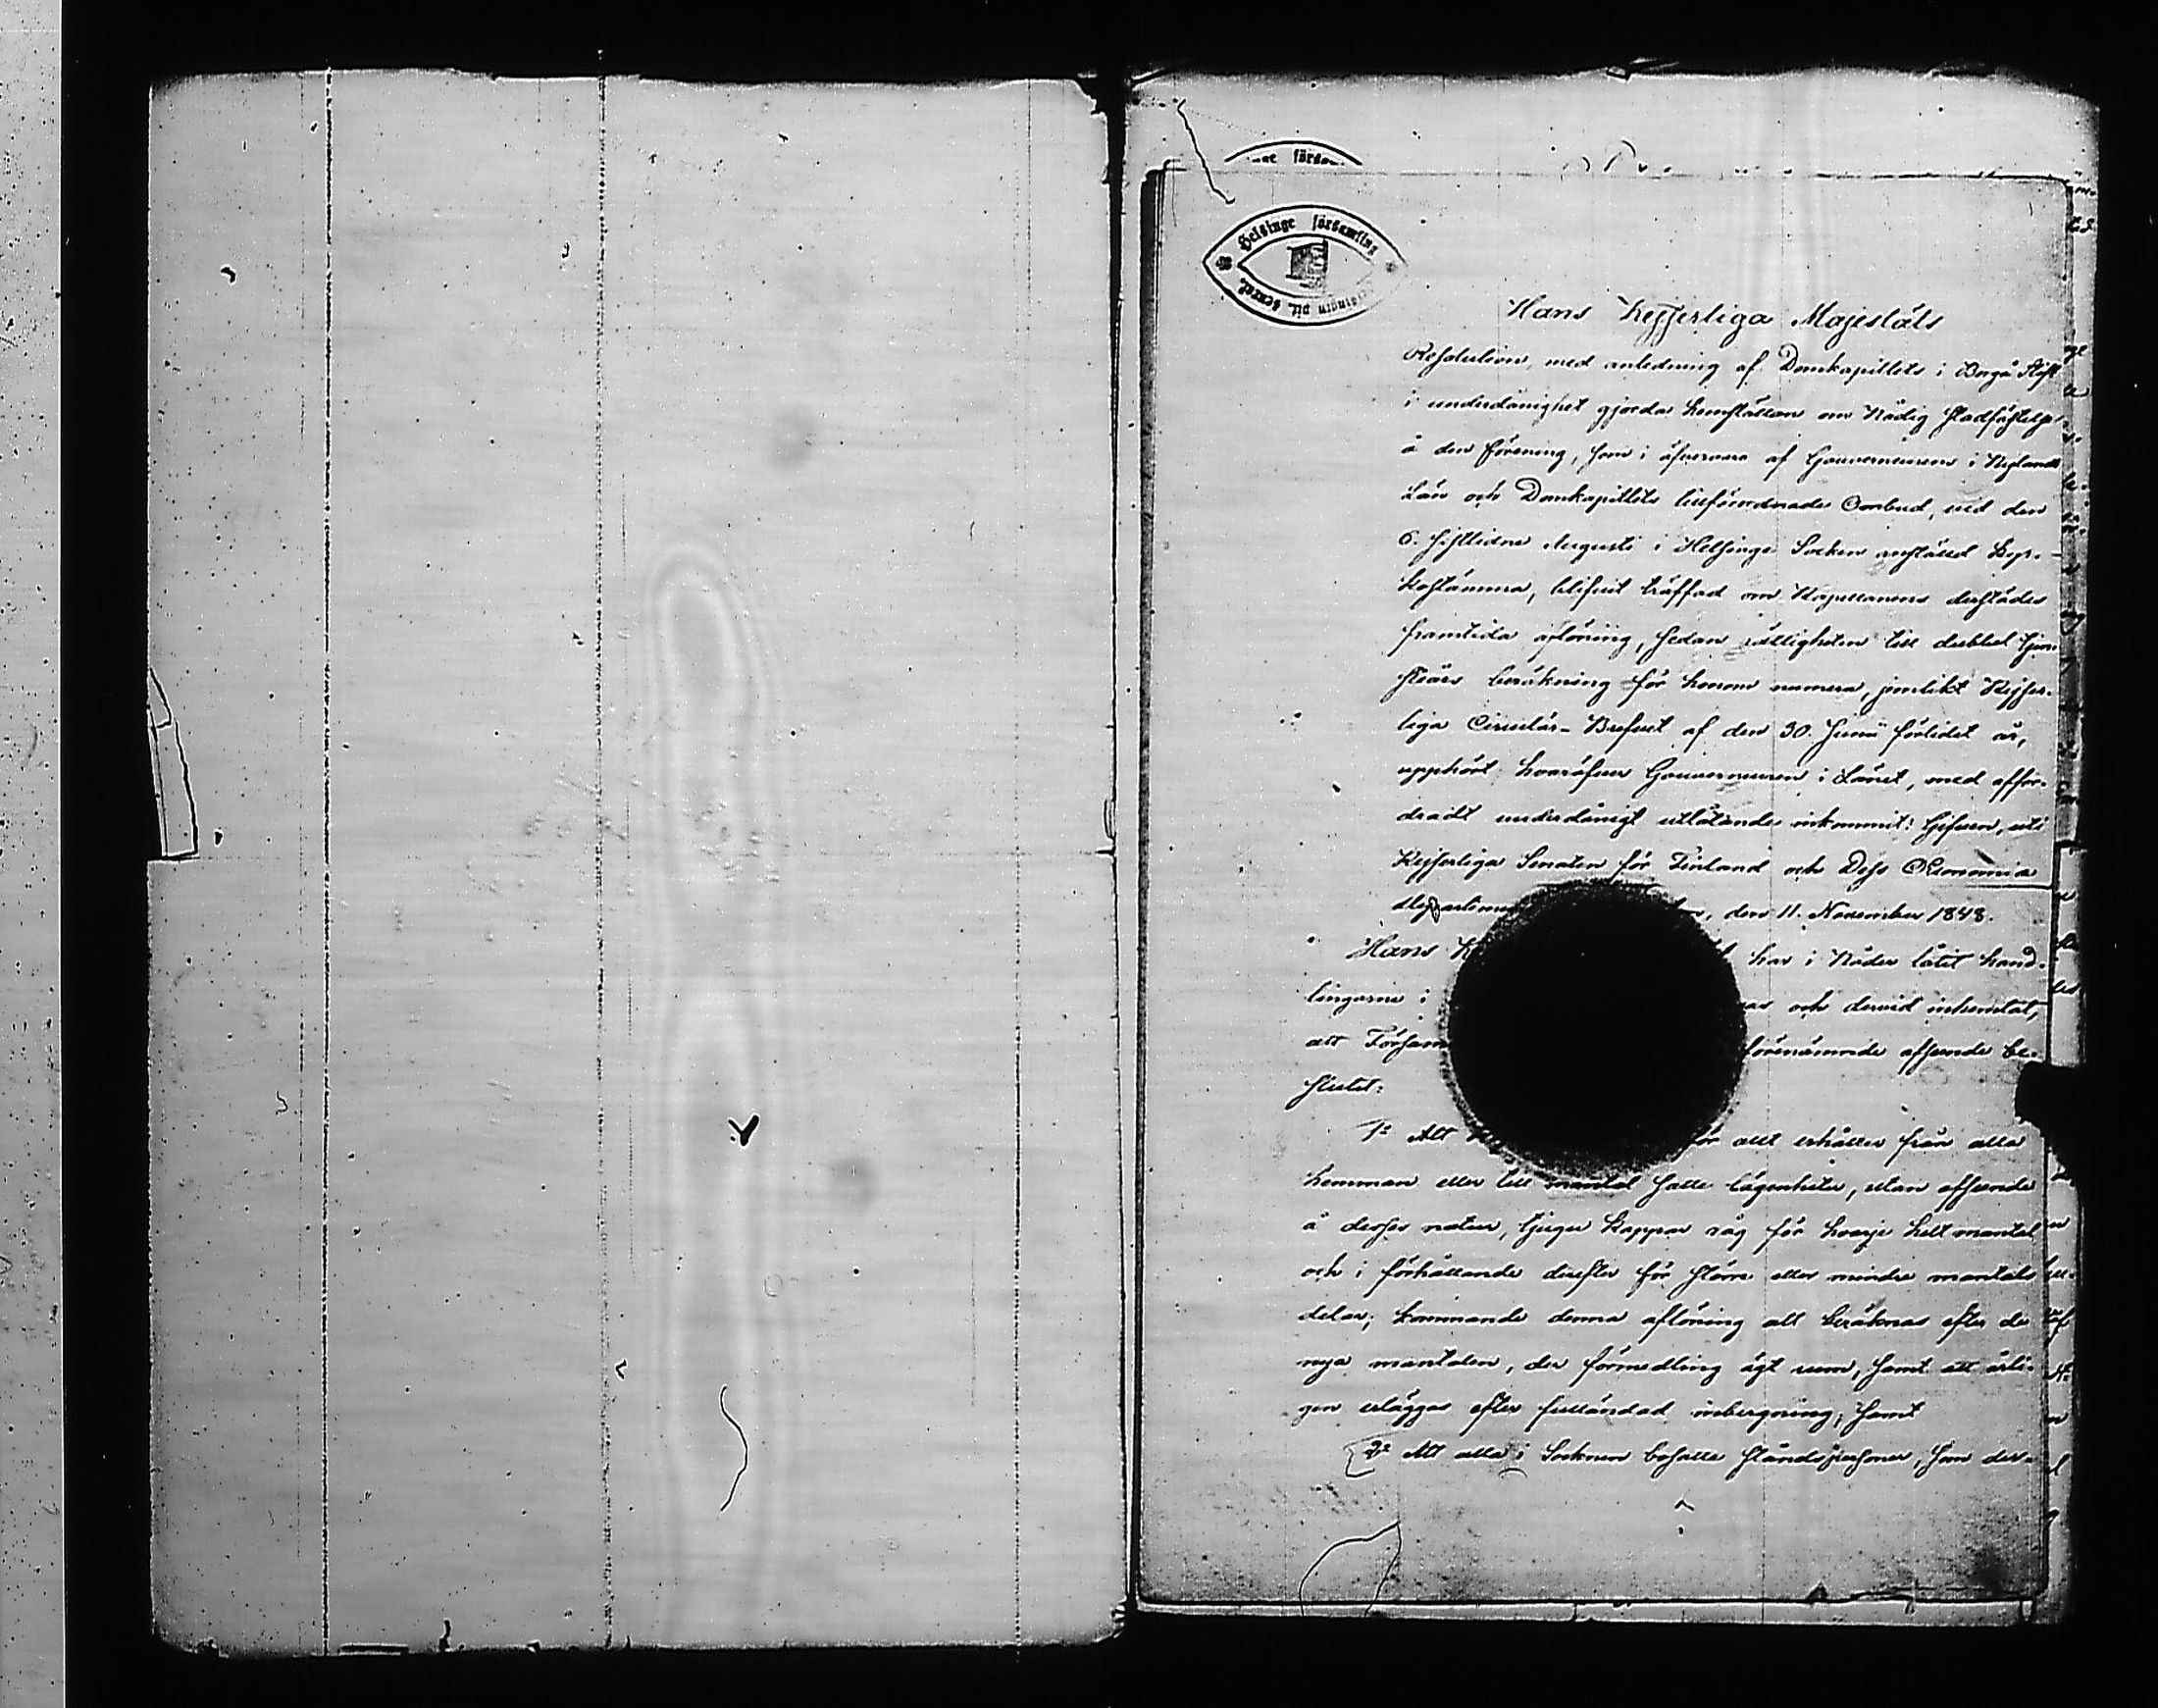 Helsinge församling
Hans Kejserliga Majestäts
Resolution, med anledning af Domkapitlets i Borgå Stift
i underdånighet gjorda hemställan om Nådig stadfästelse
å den förening, som i öfvervaro af Gouverneurens i Nylands
Län och Domkapitlets tillförordnade Ombud, vid den
6. sistlidne Augusti i Helsinge Socken anställd Kyr-
kostämma, blifvit träffad om Kapellanens derstädes
framtida aflöning, sedan rättigheten till dubbel tjen-
steårs beräkning för honom numera, jemlikt Kejser-
liga Circulär-Brefvet af den 30. Junii förledet år,
upphört; hvaröfver Gouverneuren i Länet, med affor-
dradt underdånigt utlåtande inkommit: Gifven, uti
Kejserliga Senaten för Finland och Dess Oekonomie
den 11. November 1848.
Hans har i Nåder låtit hand-
lingarne i och dervid inhemtat,
att förenämnde afseende be-
slutit:
1o Att allt erhåller från alla
hemman eller till mantal satte lägenheter, utan afseende
å desses natur, tjugu kappar råg för hvarje helt mantal
och i förhållande derefter för större eller mindre mantals
delar; kommande denna aflöning att beräknas efter de
nya mantalen, der förmedling ägt rum, samt att årli-
gen erläggas efter fulländad inbergning; samt
2o Att alla i Socknen bosatte ståndspersoner, som der-